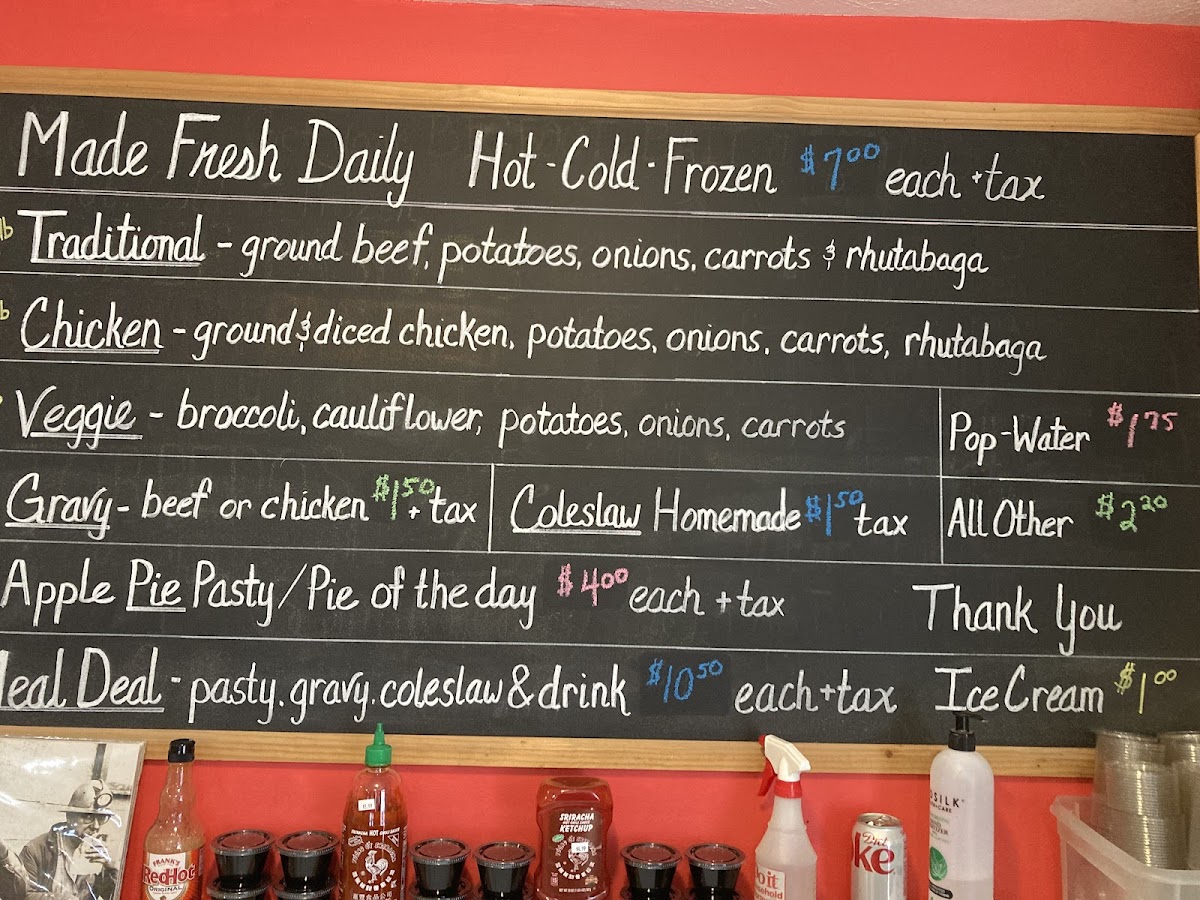 Made Fresh Daily Hot - Cold - Frozen $7.00 each + tax
lb Traditional - ground beef, potatoes, onions, carrots & rhutabaga
Chicken - ground & diced chicken, potatoes, onions, carrots, rhutabaga
Veggie - broccoli, cauliflower, potatoes, onions, carrots
Pop-Water $1.75
Gravy - beef or chicken $1.50 + tax
Coleslaw Homemade $1.50 tax
All Other $2.20
Apple Pie Pasty/Pie of the day $4.00 each + tax
Thank You
Meal Deal - pasty, gravy, coleslaw & drink $10.50 each + tax
Ice Cream $1.00
FRANK'S
RedHot
ORIGINAL
SRIRACHA HOT CHILI SAUCE
SRIRACHA
HOT CHILI SAUCE
KETCHUP
Diet
ke
SILK